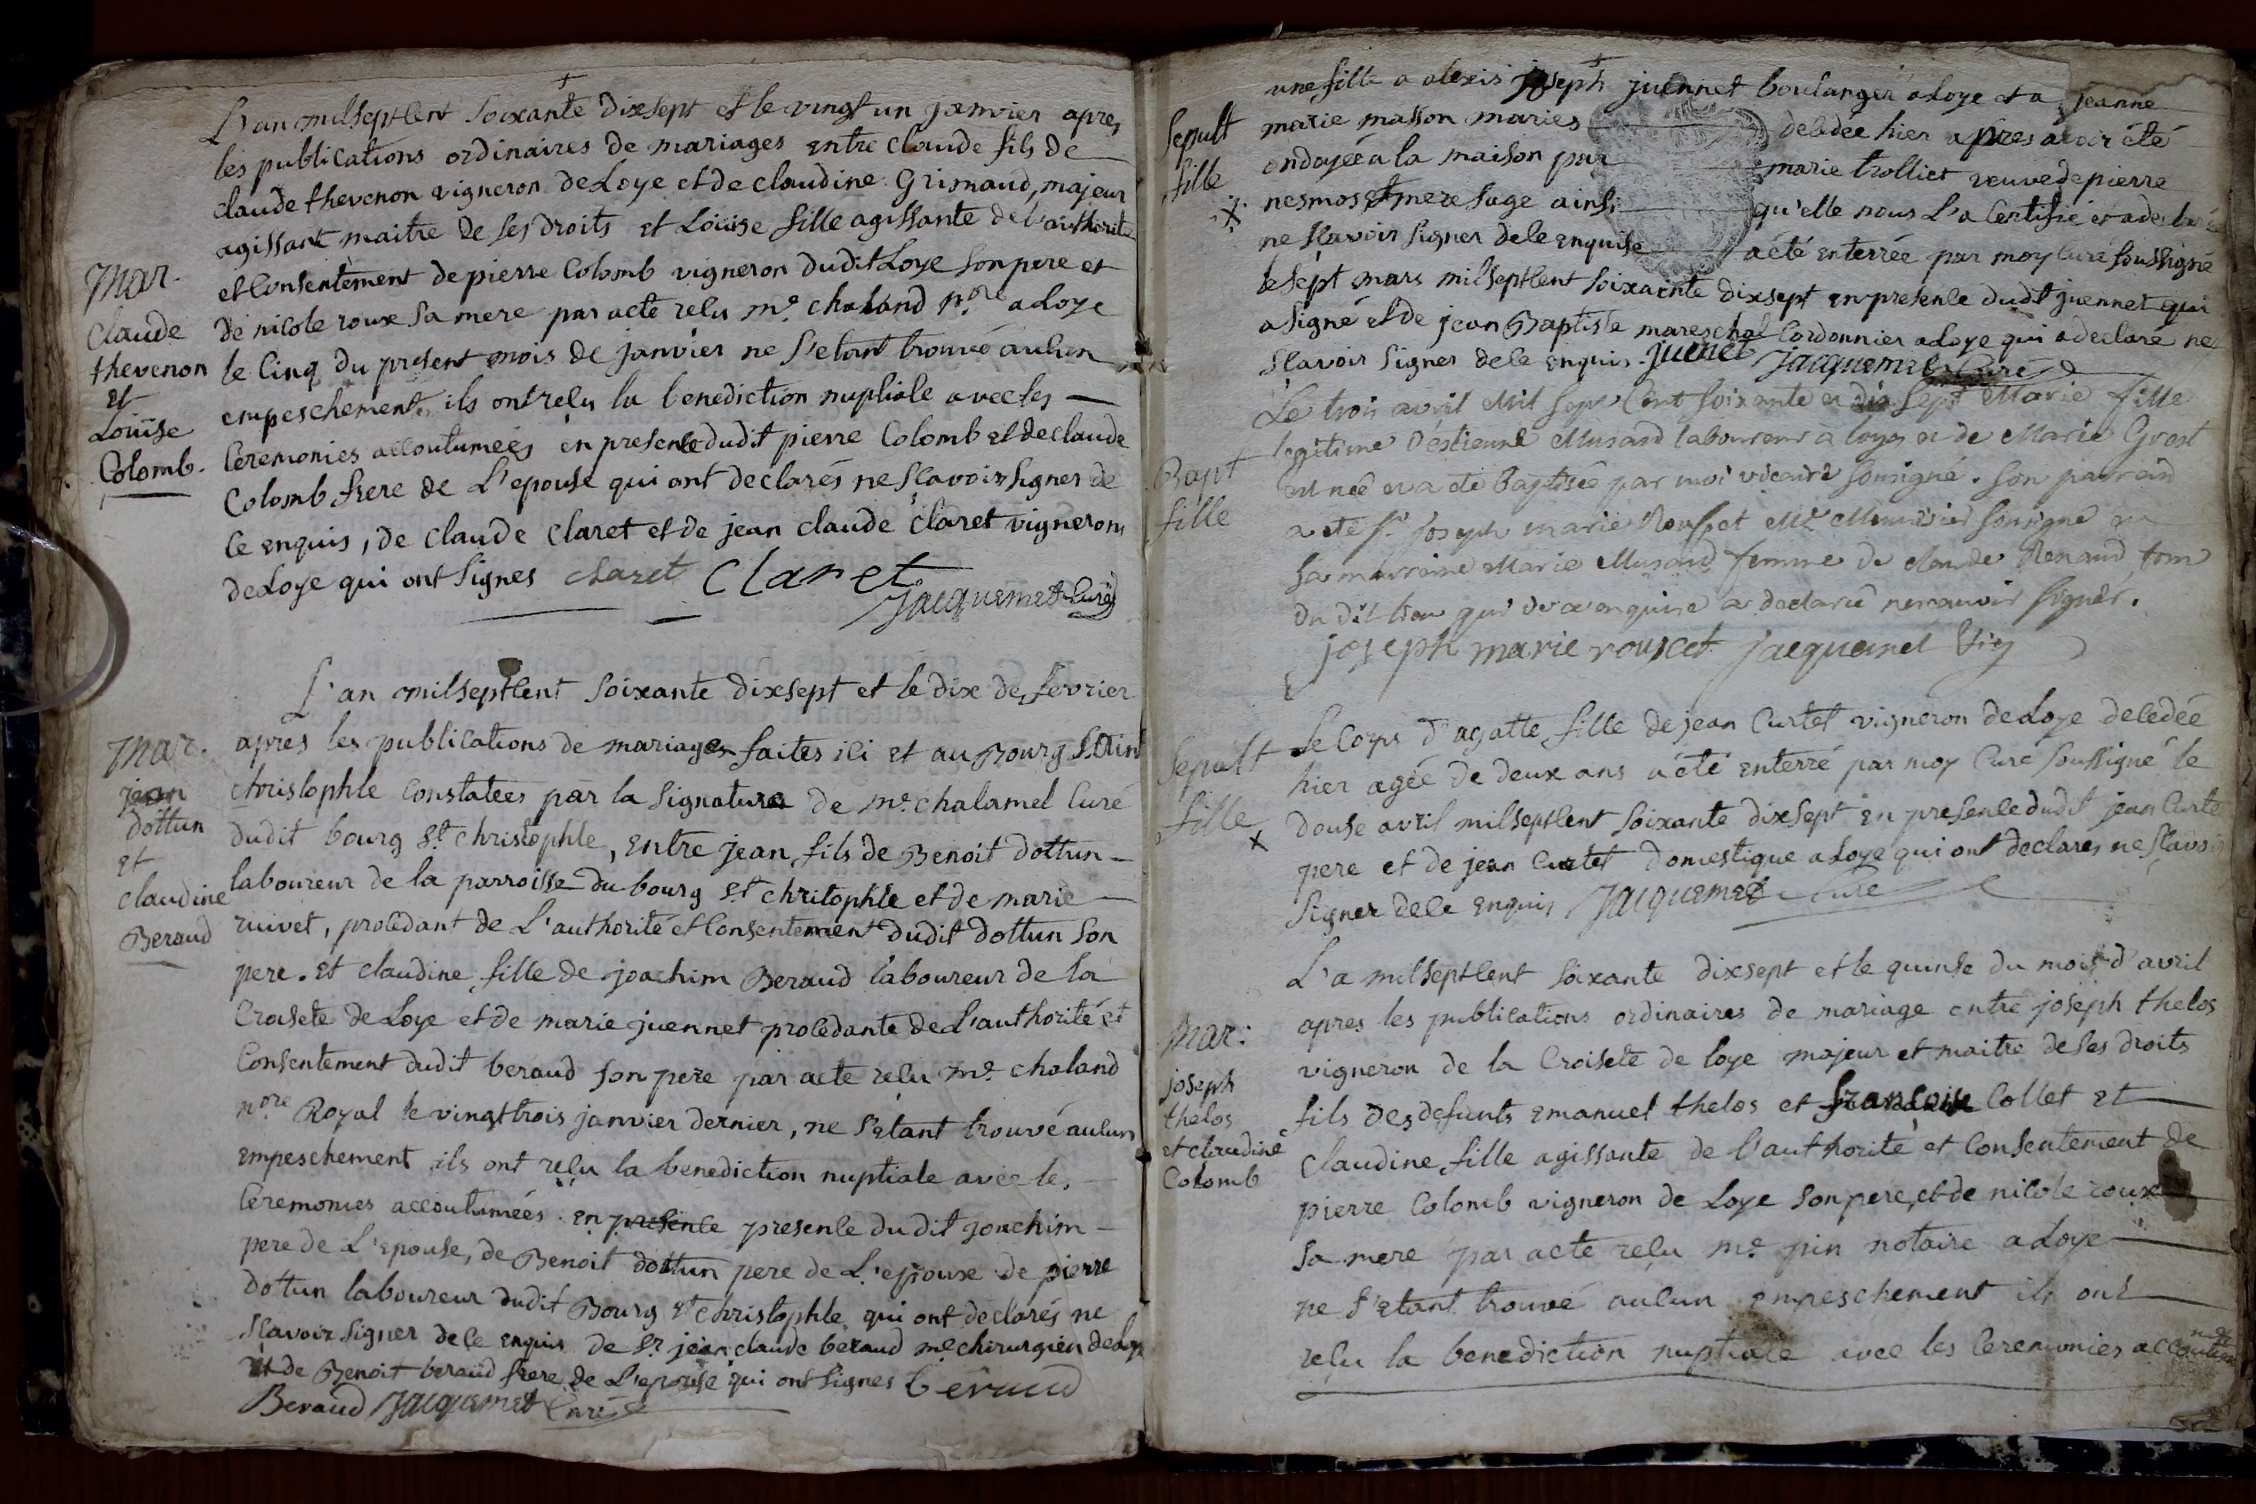 L'an milseptcent soixante dixsept et le vingt un janvier apres
les publications ordinaires de mariages entre claude fils de
claude thevenon vigneron de Loye et de claudine Grimaud, majeur
agissant maitre de ses droits et Louise fille agissante de l'authorite
et consentement de pierre Colomb vigneron dudit Loye son pere et
de nicole roux sa mere par acte reçu me. chaland nore a Loye
le cinq du present mois de janvier ne s'etant trouvé aucun
empeschement, ils ont reçu la benediction nuptiale avec les
ceremonies accoutumees en presence dudit pierre Colomb et de claude
Colomb frere de L'epouse qui ont declarés ne sçavoir signer de
ce enquis, de claude claret et de jean claude claret vignerons
de Loye qui ont signes claret Claret
Jacquemet curé
Mar.
Claude
thevenon
et
Louise
Colomb.
L'an milseptcent soixante dixsept et le dix de fevrier
apres les publications de mariages faites ici et au Bourg saint
christophle constatees par la signature de me. chalamel curé
dudit bourg st. christophle, entre jean fils de Benoit dottun
laboureur de la parroisse du bourg st. chritophle et de marie
ruivet, procedant de L'authorité et consentement dudit dottun son
pere. et claudine fille de joachim Beraud laboureur de la
Croisete de Loye et de marie juennet procedante de L'authorité et
consentement dudit beraud son pere par acte reçu me. chaland
nore Royal le vingt trois janvier dernier, ne s'etant trouvé aucun
empeschement ils ont reçu la benediction nuptiale avec les
ceremonies accoutumées. en presence presence dudit joachim
pere de L'epouse, de Benoit dottun pere de L'epoux de pierre
dotun laboureur dudit Bourg st christophle qui ont declarés ne
sçavoir signer de ce enquis de sr. jean claude beraud me. chirurgien de Loye
et de Benoit beraud frere de L'epouse qui ont signes beraud
Beraud Jacquemet curé
Mar.
jean
dottun
et
claudine
Beraud
une fille a alexis joseph juennet boulanger a Loye et a jeanne
marie masson maries decedée hier apres avoir été
ondoyée a la maison par marie trolliet veuve de pierre
nesmos mere sage ainsi qu'elle nous L'a certifié et a declaré
ne sçavoir signer de ce enquise a été enterrée par moy curé soussigné
le sept mars milseptcent soixante dixsept en presence dudit juennet qui
a signé et de jean Baptiste mareschal cordonnier a Loye qui a declaré ne
sçavoir signer de ce enquis. juenet Jacquemet curé
Sepult
fille
Le trois avril mil sept cent soixante et dix sept Marie fille
legitime d'estienne Musard laboureur a loyes et de Marie Grost
est neé et a eté Baptisée par moi vicaire sousigné. son parrain
a eté sr. joseph marie Rousset Me Menuisier sousigné et
sa marraine Marie Musard femme de claude Renaud
du dit lieu qui de ce enquise a declaré ne scavoir signer.
joseph marie rouscet jacquemet vic
Bapt
fille
Le corps d'agatte fille de jean Curtet vigneron de Loye decedée
hier agée de deux ans a été enterré par moy curé soussigné le
douse avril milseptcent soixante dixsept en presence dudit jean Curtet
pere et de jean Curtet domestique a Loye qui ont declares ne sçavoir
signer de ce enquis Jacquemet curé
Sepult
fille
L'a milseptcent soixante dixsept et le quinse du mois d'avril
apres les publications ordinaires de mariage entre joseph thelos
vigneron de la Croisete de loye majeur et maitre de ses droits
fils des defunts emanuel thelos et françoise Collet et
claudine fille agissante de l'authorité et consentement de
pierre Colomb vigneron de Loye son pere, et de nicole roux
sa mere par acte reçu me. pin notaire a Loye
ne s'etant trouvé aucun empeschement ils ont
reçu la benediction nuptiale avec les ceremonies accoutumées
Mar:
joseph
thelos
et claudine
Colomb